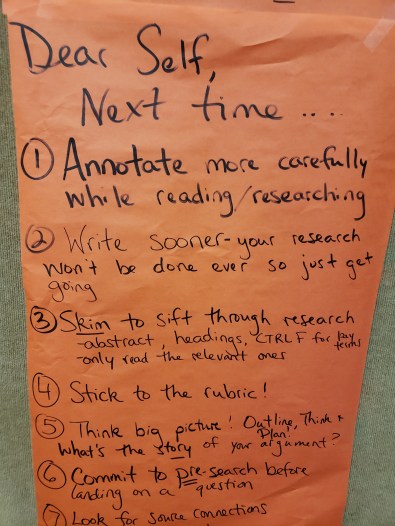 Dear Self,
Next time ....
① Annotate more carefully
while reading/researching
② Write sooner - your research
won't be done ever so just get
going
③ Skim to sift through research
-abstract, headings, CTRL F for key
terms
-only read the relevant ones
④ Stick to the rubric!
⑤ Think big picture! Outline, Think +
Plan!
What's the story of your argument?
⑥ Commit to pre-search before
landing on a question
⑦ Look for source connections